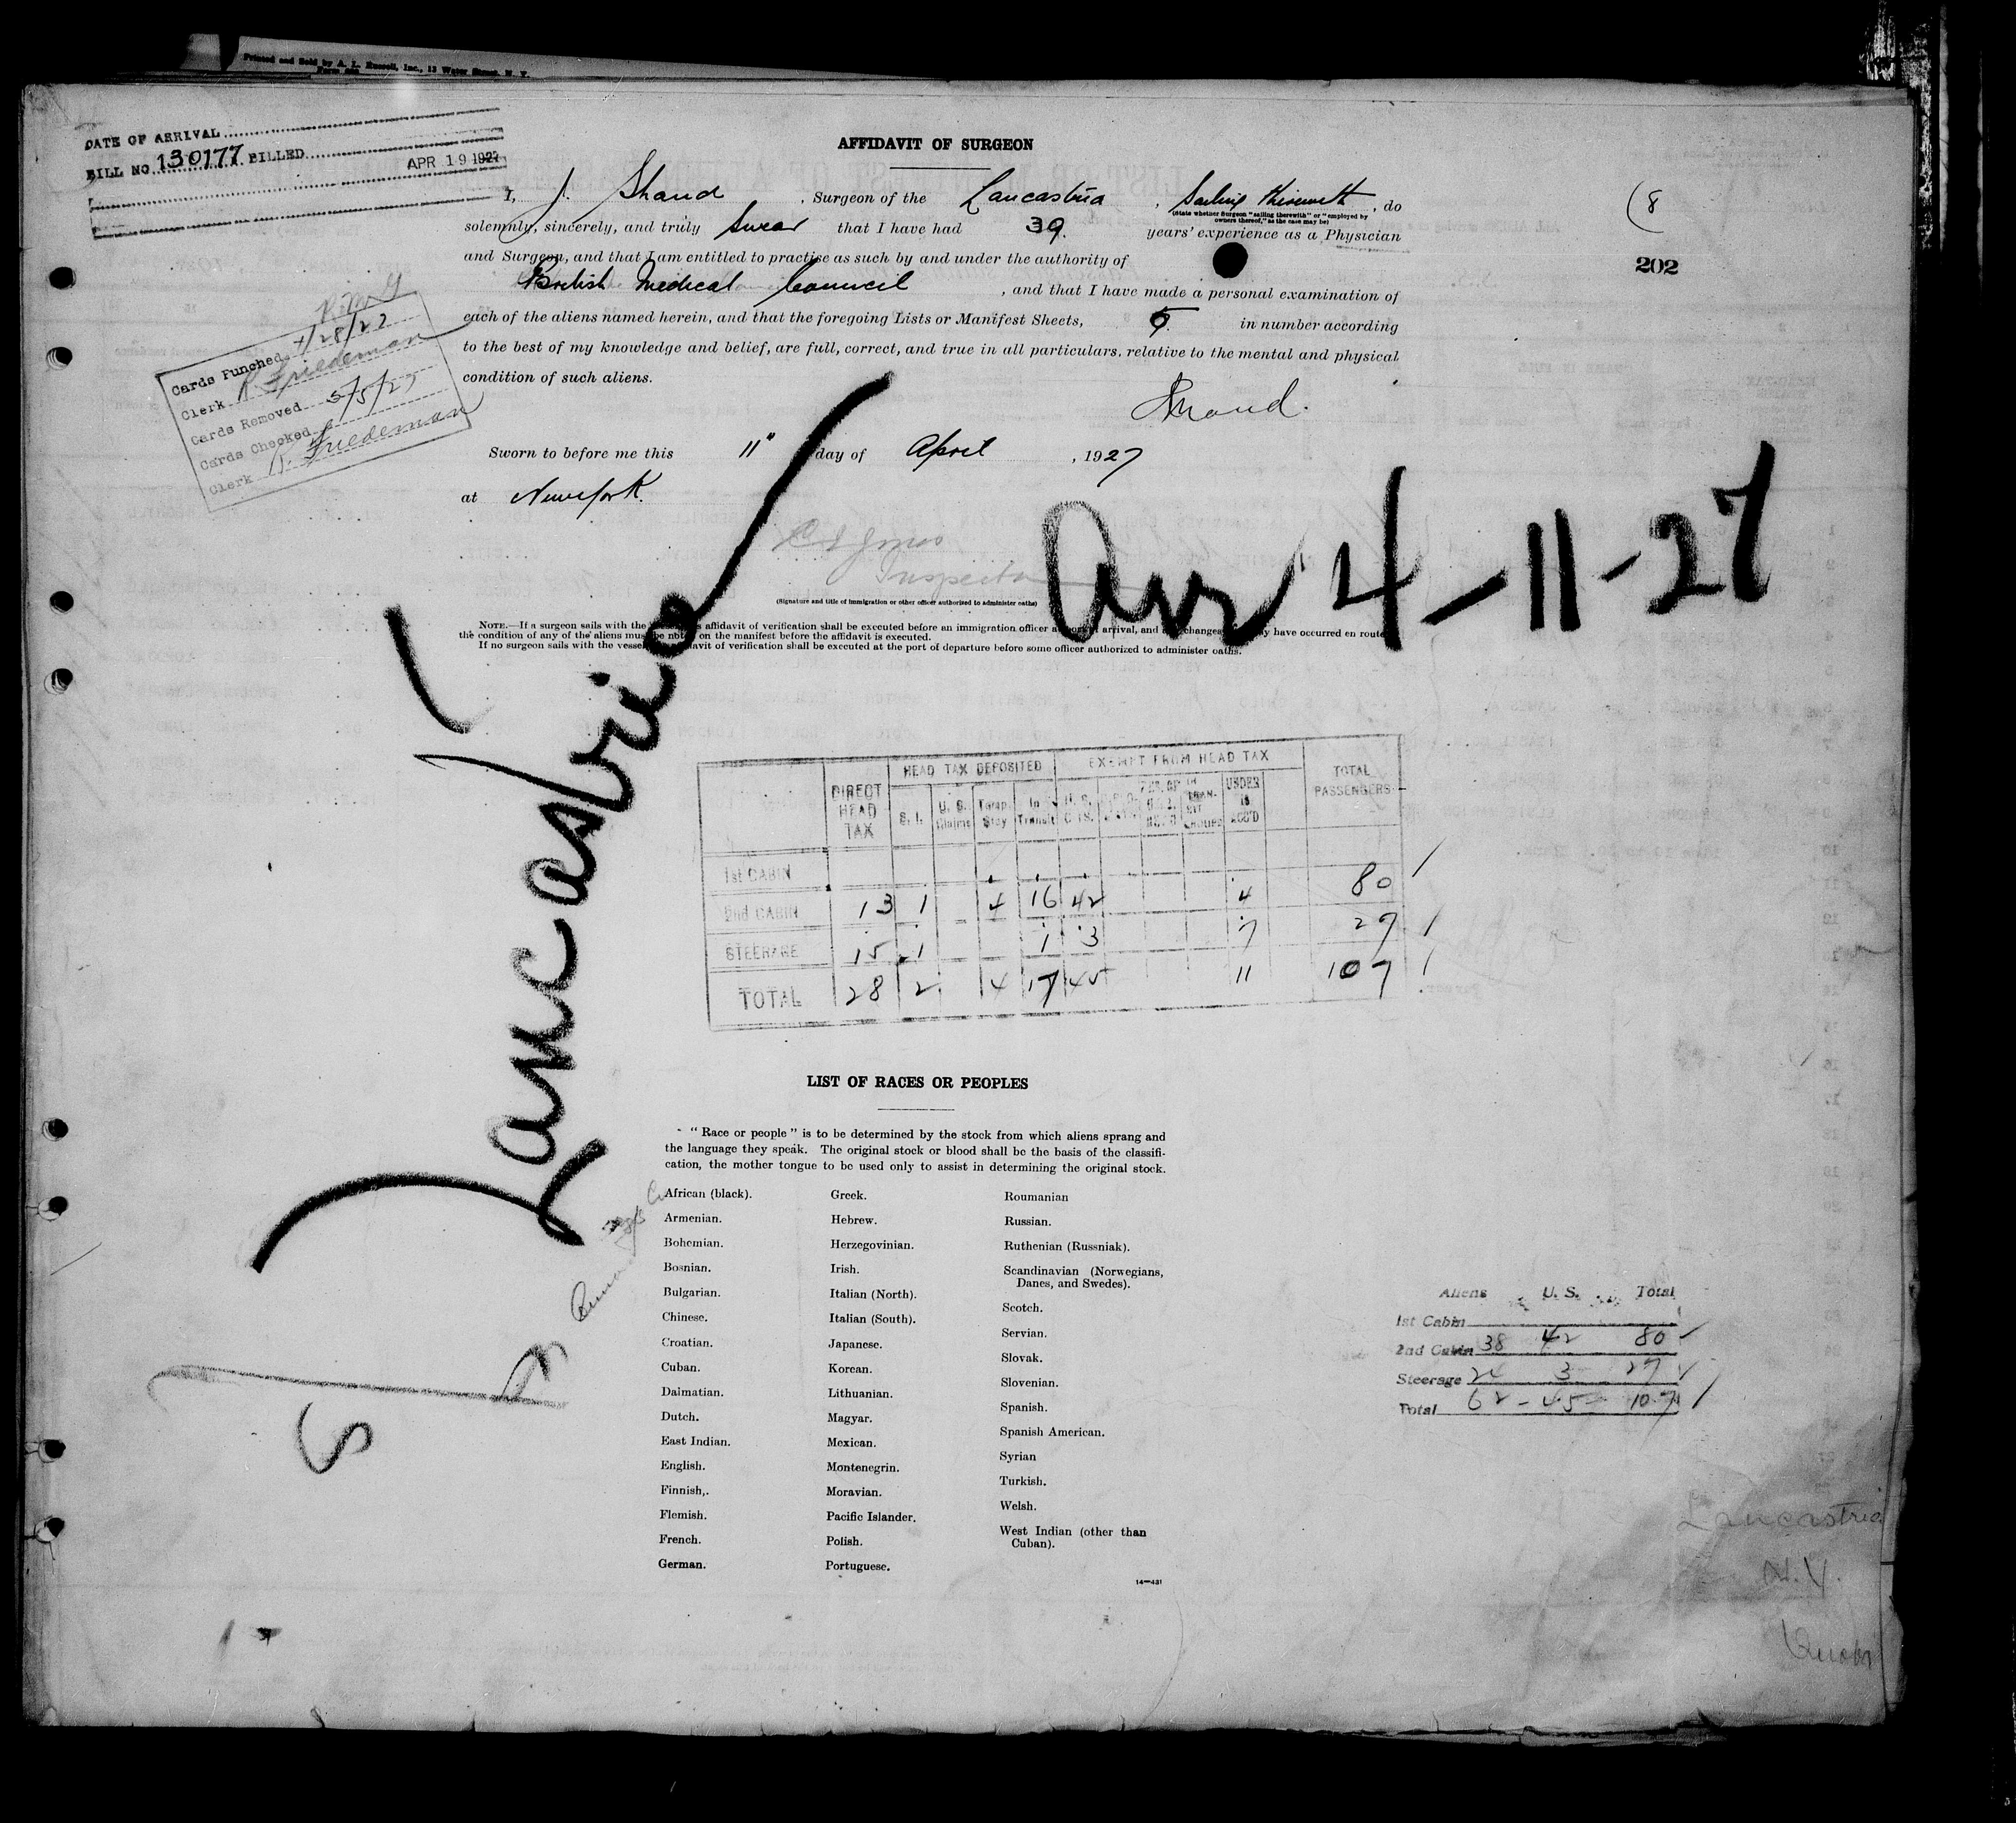 Printed and Sold by A. L. Russell, Inc., 13 Water Street, N. Y.
DATE OF ARRIVAL
BILL NO. 130177 BILLED APR 19 1927
AFFIDAVIT OF SURGEON
I, J. Shand, Surgeon of the Lancastria, Sailing therewith, do
(State whether Surgeon "sailing therewith" or "employed by
owners thereof," as the case may be)
solemnly, sincerely, and truly swear that I have had 39. years' experience as a Physician
and Surgeon, and that I am entitled to practise as such by and under the authority of
British Medical Council, and that I have made a personal examination of
each of the aliens named herein, and that the foregoing Lists or Manifest Sheets, in number according
to the best of my knowledge and belief, are full, correct, and true in all particulars, relative to the mental and physical
condition of such aliens.
(8
202
Cards Punched 4/28/27
Clerk R. Friedeman
Cards Removed 5/5/27
Cards Checked
Clerk R. Friedeman
JShand.
Sworn to before me this 11" day of April, 1927
at New York.
Inspector
(Signature and title of immigration or other officer authorized to administer oaths)
Lancastria
Arr 4-11-27
NOTE.—If a surgeon sails with the affidavit of verification shall be executed before an immigration officer arrival, and changes have occurred en route
the condition of any of the aliens must be noted on the manifest before the affidavit is executed.
If no surgeon sails with the vessel affidavit of verification shall be executed at the port of departure before some officer authorized to administer oaths.
DIRECT HEAD TAX HEAD TAX DEPOSITED EXEMPT FROM HEAD TAX TOTAL PASSENGERS
S. I. U. S. Claims Temp. Stay In Transit U. S. CITS. UNDER 16 ACC'D
1st CABIN
2nd CABIN 13 1 4 16 42 4 80
STEERAGE 15 1 1 3 7 27
TOTAL 28 2 4 17 45 11 107
LIST OF RACES OR PEOPLES
"Race or people" is to be determined by the stock from which aliens sprang and
the language they speak. The original stock or blood shall be the basis of the classifi-
cation, the mother tongue to be used only to assist in determining the original stock.
African (black).
Armenian.
Bohemian.
Bosnian.
Bulgarian.
Chinese.
Croatian.
Cuban.
Dalmatian.
Dutch.
East Indian.
English.
Finnish,.
Flemish.
French.
German.
Greek.
Hebrew.
Herzegovinian.
Irish.
Italian (North).
Italian (South).
Japanese.
Korean.
Lithuanian.
Magyar.
Mexican.
Montenegrin.
Moravian.
Pacific Islander.
Polish.
Portuguese.
Roumanian
Russian.
Ruthenian (Russniak).
Scandinavian (Norwegians,
Danes, and Swedes).
Scotch.
Servian.
Slovak.
Slovenian.
Spanish.
Spanish American.
Syrian
Turkish.
Welsh.
West Indian (other than
Cuban).
14—431
Aliens U. S. Total
1st Cabin
2nd Cabin 38 42 80
Steerage 24 3 27
Total 62 - 45 107
Lancastria
N.Y.